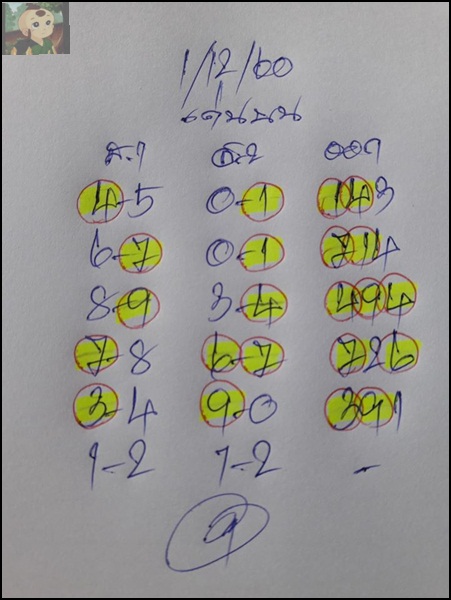 1/12/60
เด่นบน
ส.1 ส.2 ออก
4-5 0-1 143
6-7 0-1 714
8-9 3-4 494
7-8 6-7 726
3-4 9-0 391
1-2 1-2 -
9